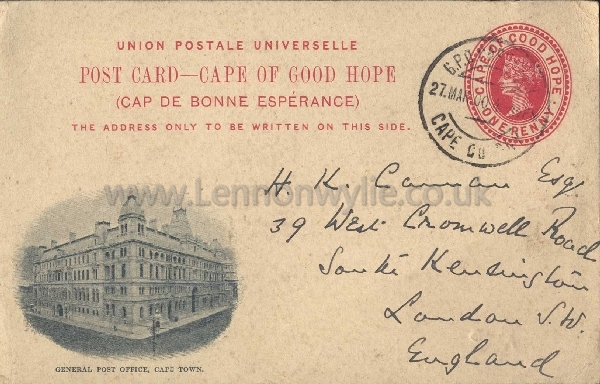 UNION POSTALE UNIVERSELLE
POST CARD—CAPE OF GOOD HOPE
(CAP DE BONNE ESPÉRANCE)
THE ADDRESS ONLY TO BE WRITTEN ON THIS SIDE.
CAPE OF GOOD HOPE
ONE PENNY
G.P.O.
27.MAR
CAPE
www.Lennonwylie.co.uk
H. K. Esqr
39 West Cromwell Road
South Kensington
London S.W.
England
GENERAL POST OFFICE, CAPE TOWN.